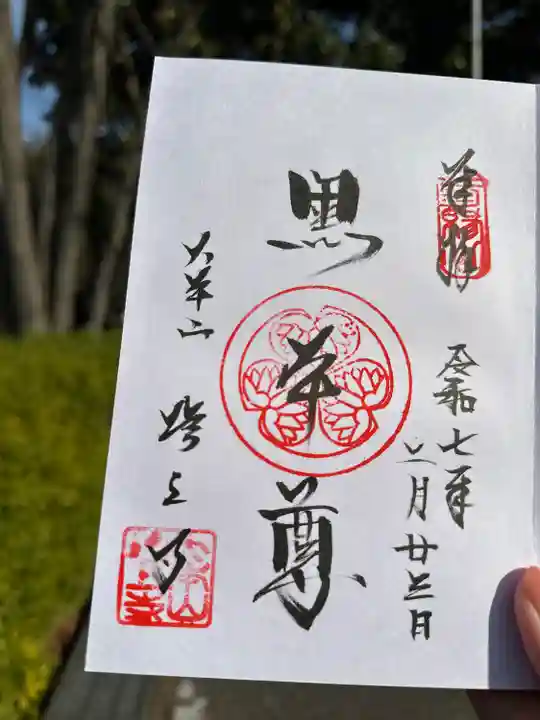 奉拝
令和七年
月廿三日
黒本尊
大本山
増上寺